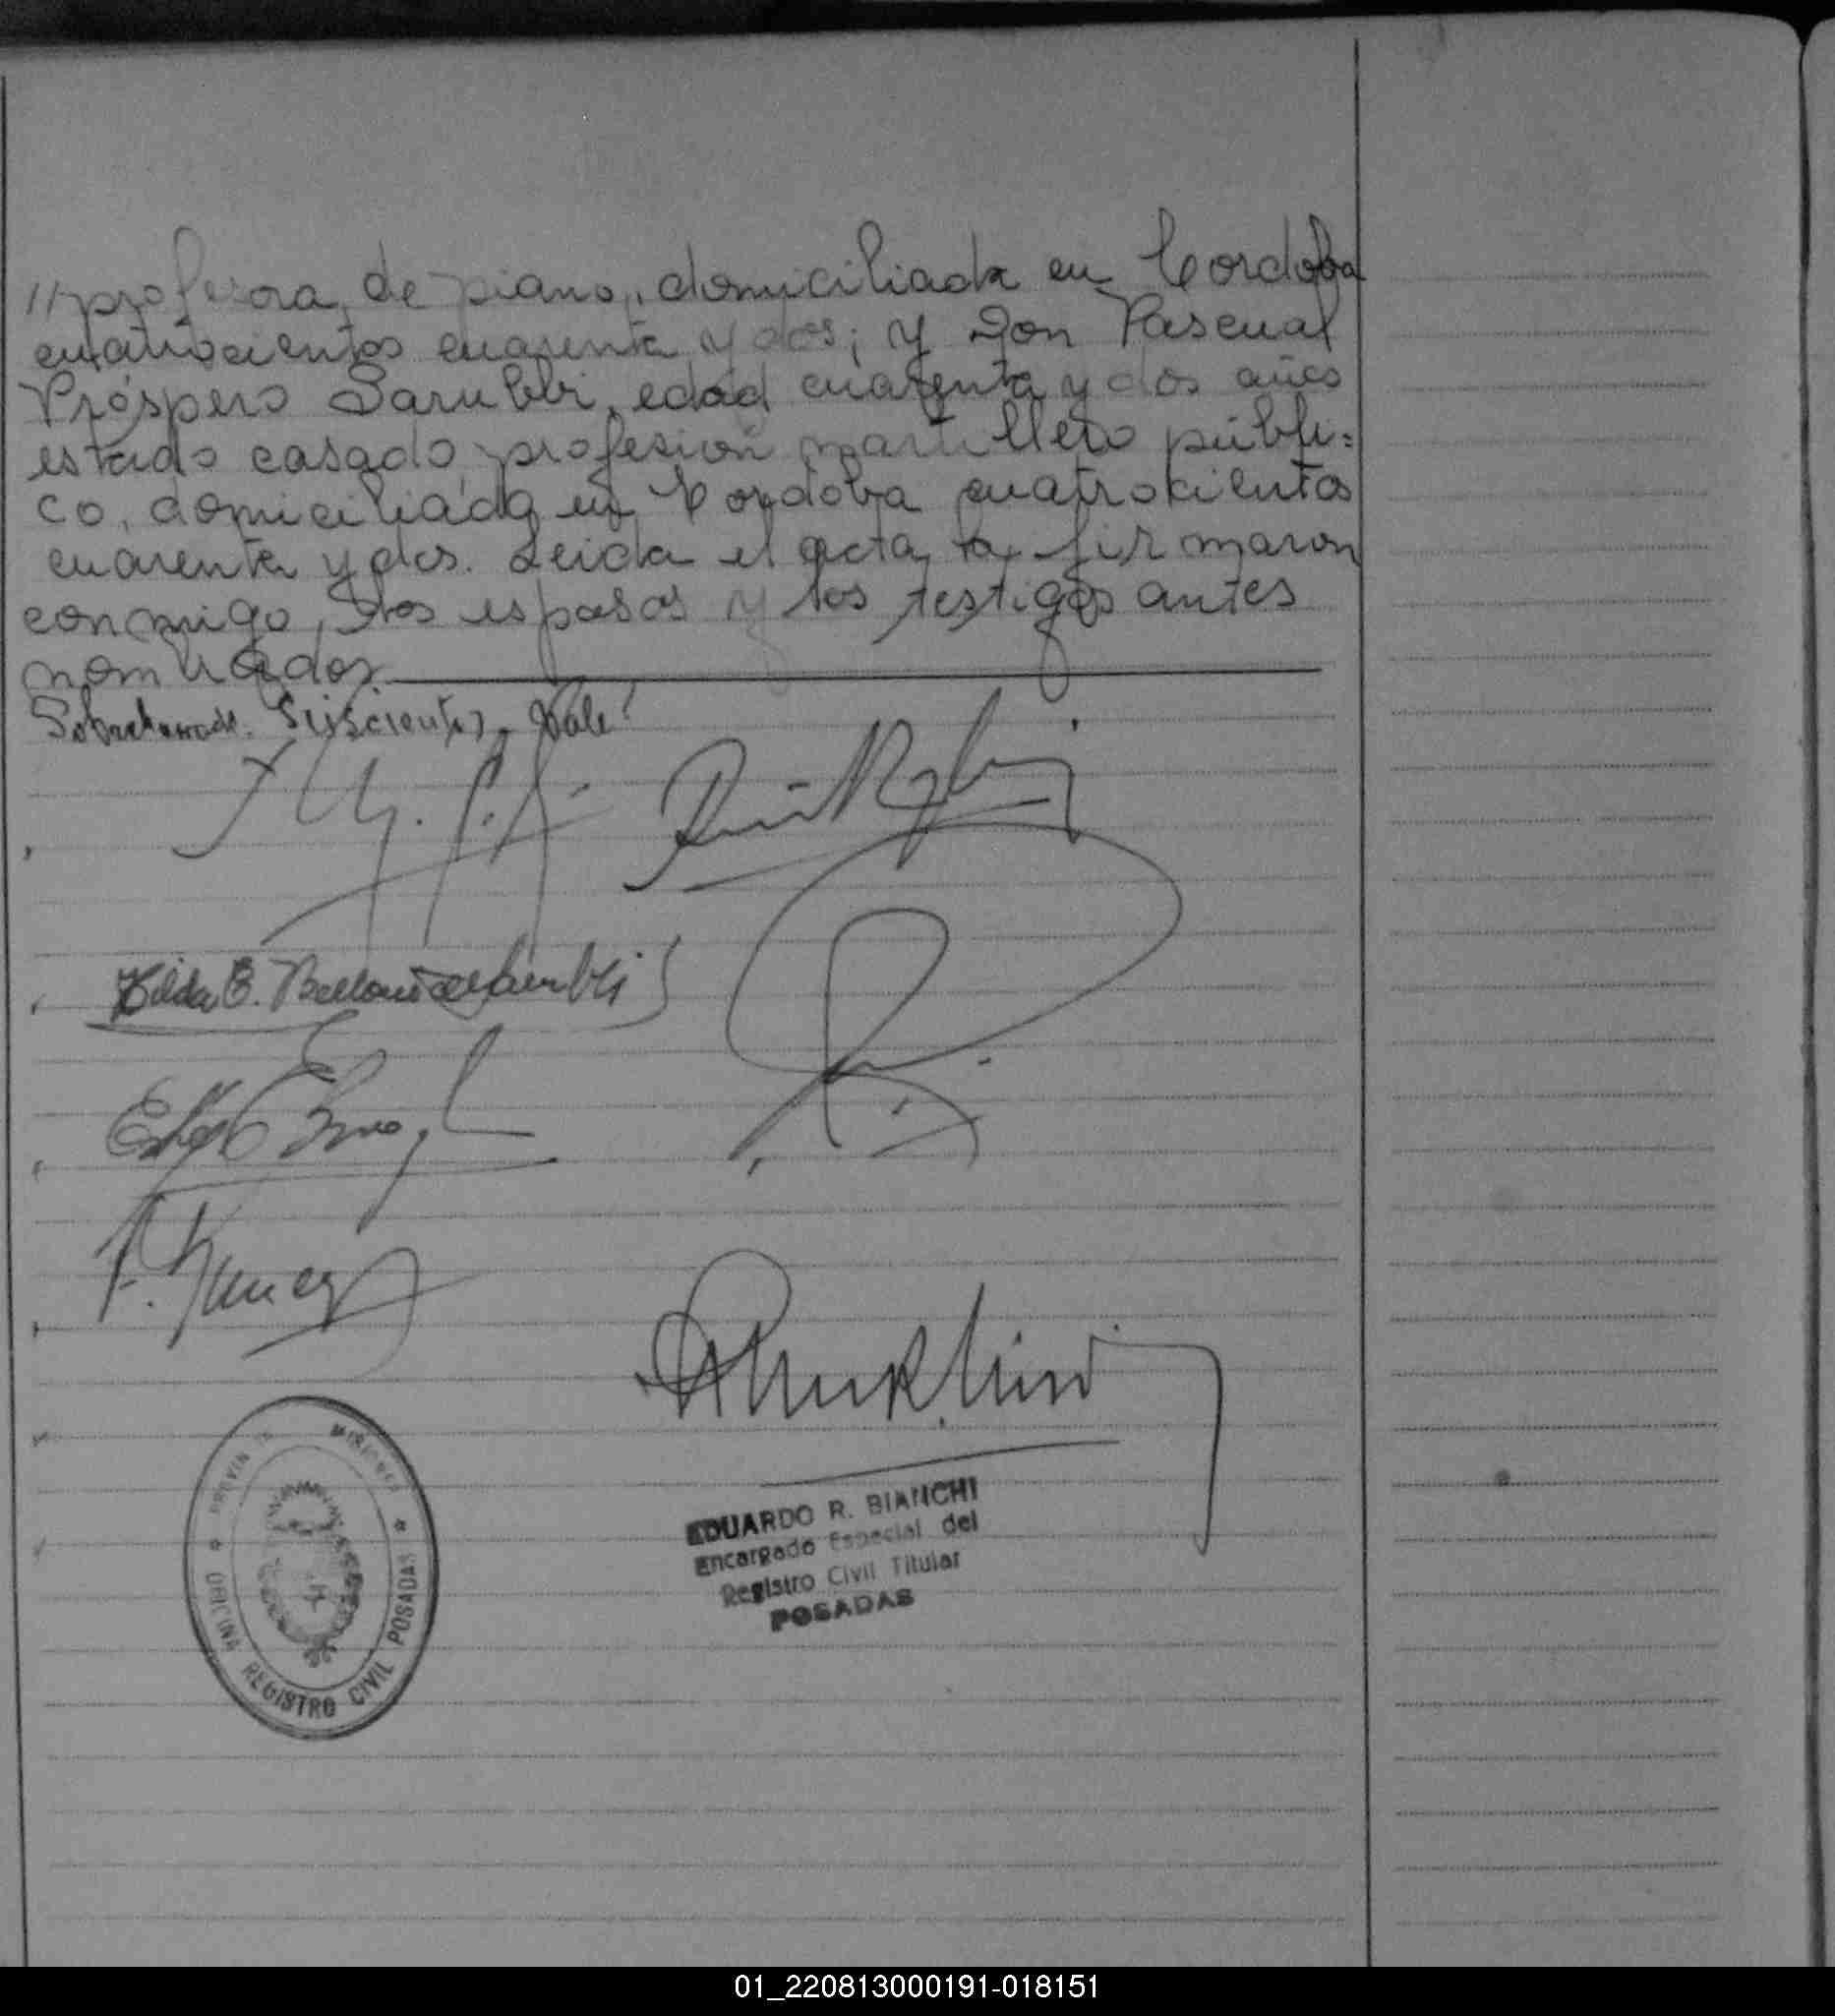 //profesora de piano, domiciliada en Cordoba
cuatrocientos cuarenta y dos; y Don Pascual
Próspero Sarubbi, edad cuarenta y dos años
estado casado, profesion martillero públi=
co, domiciliada en Cordoba cuatrocientos
cuarenta y dos. Leida el acta la firmaron
conmigo, los esposos y los testigos antes
nombrados.
Sobreborrado. Seiscientos. Vale!
Hilda B. de Sarubbi
EDUARDO R. BIANCHI
Encargado Especial del
Registro Civil Titular
POSADAS
MISIONES
REGISTRO CIVIL POSADAS
01_220813000191-018151